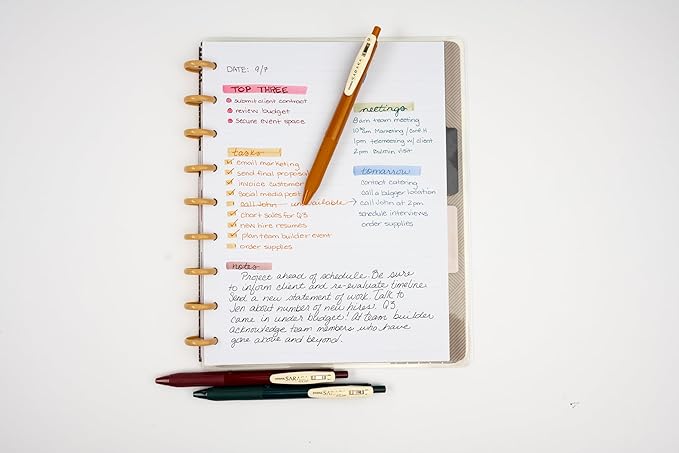 DATE: 9/7
TOP THREE
submit client contract
review budget
secure event space
meetings
8am team meeting
Marketing
1pm teemeering w/ client
2pm visit
tasks
email marketing
send final proposal
invoice customer
social media post
call John unavailable
chart sales for Q3
new hire resumes
plan team builder event
order supplies
tomorrow
contact catering
call a bigger location
call John at 2pm
schedule interviews
order supplies
notes
Project ahead of schedule. Be sure
to inform client and re-evaluate timeline.
Send a new statement of work. Talk to
Jen about number of new hires. Q3
came in under budget! At team builder
acknowledge team members who have
gone above and beyond.
SARASA
SARASA
SARASA